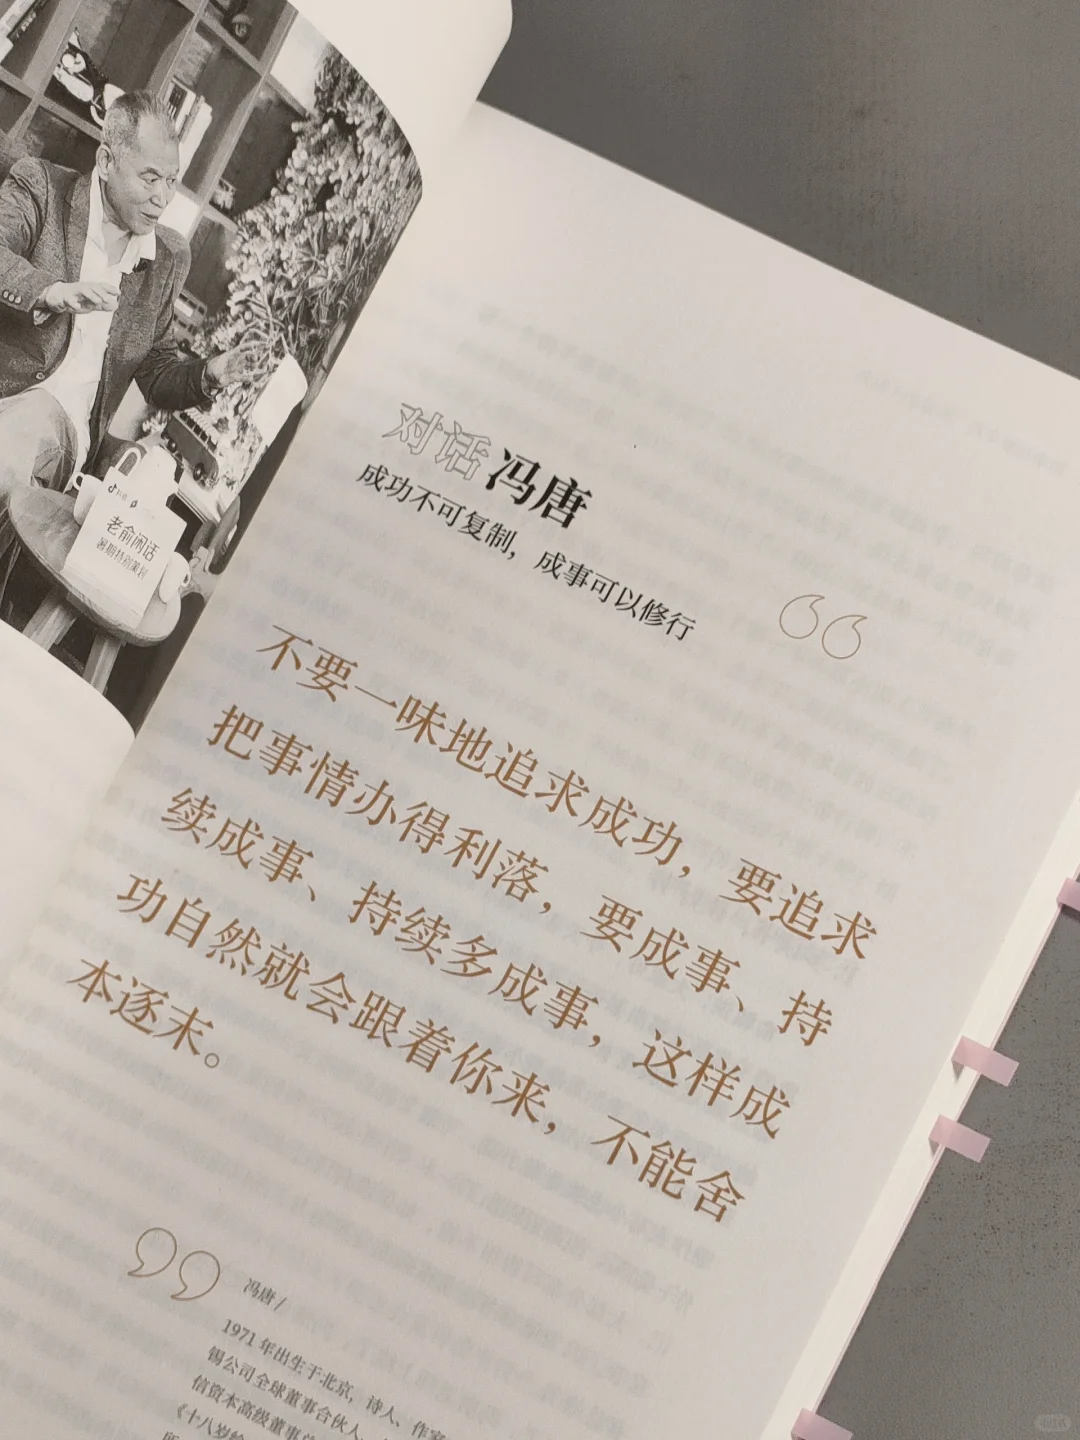 老俞闲话
暑期特别策划
对话 冯唐
成功不可复制，成事可以修行
不要一味地追求成功，要追求
把事情办得利落，要成事、持
续成事、持续多成事，这样成
功自然就会跟着你来，不能舍
本逐末。
冯唐 /
1971 年出生于北京，诗人、作家
锡公司全球董事合伙人、
信资本高级董事总
《十八岁给